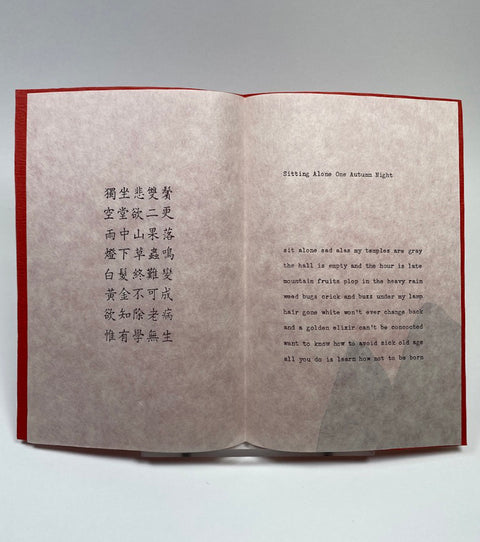 獨坐悲雙鬢
空堂欲二更
雨中山果落
燈下草蟲鳴
白髮終難變
黃金不可成
欲知除老病
惟有學無生
Sitting Alone One Autumn Night
sit alone sad alas my temples are gray
the hall is empty and the hour is late
mountain fruits plop in the heavy rain
weed bugs crick and buzz under my lamp
hair gone white won't ever change back
and a golden elixir can't be concocted
want to know how to avoid sick old age
all you do is learn how not to be born